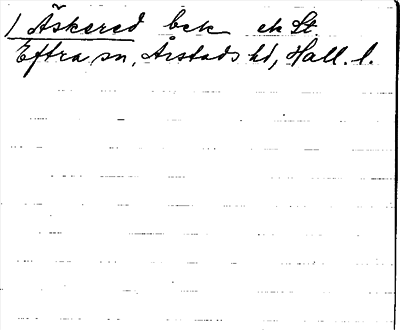 1 Äskered bek ek St.
Eftra sn, Årstads hd, Hall. l.